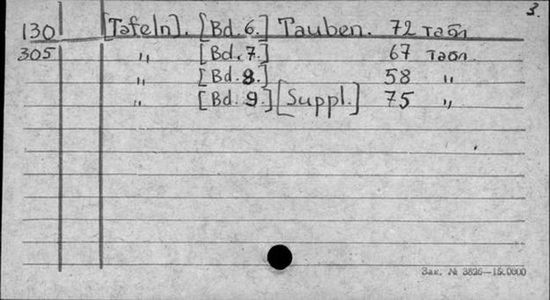 3.
130 [Tafeln]. [Bd. 6.] Tauben. 72 табл.
305 „ [Bd. 7.] 67 табл.
„ [Bd. 8.] 58 „
„ [Bd. 9.] [Suppl.] 75 „
Зак. № 3826—15.0000